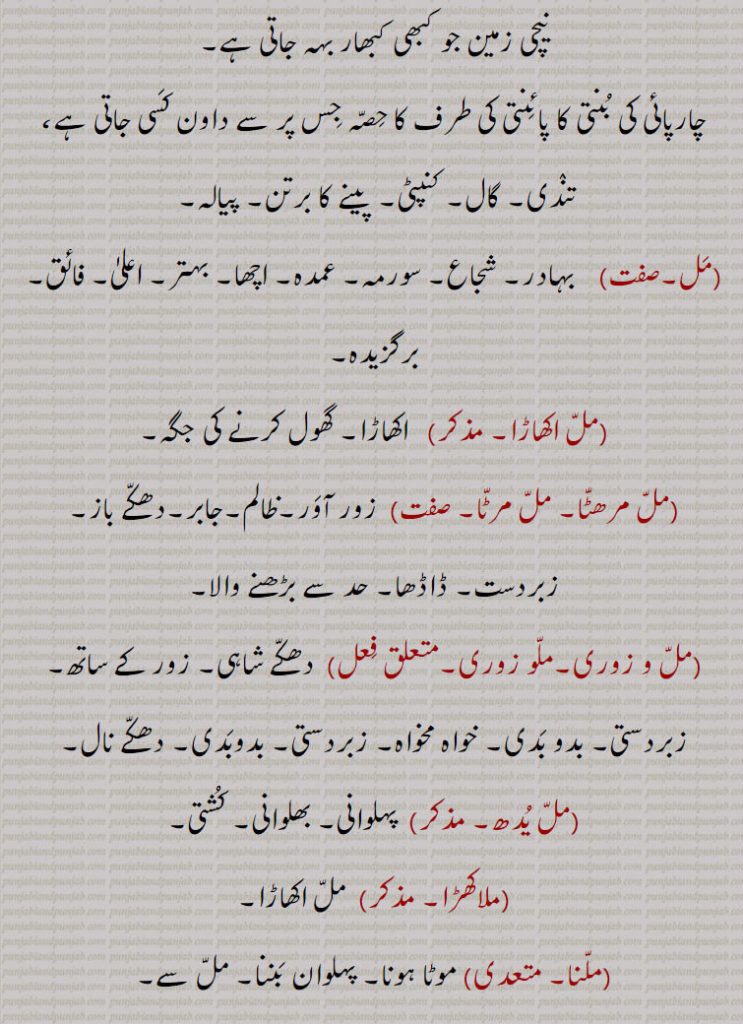 نیچی زمین جو کبھی کبھار بہہ جاتی ہے۔
چارپائی کی بُنتی کا پائِنتی کی طرف کا حِصّہ جِس پر سے داون کَسی جاتی ہے،
تندٔی۔ گال۔ کنپٹی۔ پینے کا برتن۔ پیالہ۔
(مَل۔صفت) بہادر۔ شجاع۔ سورمہ۔ عمدہ۔ اچھا۔ بہتر۔ اعلیٰ۔ فائق۔
برگزیدہ۔
(ملّ اکھاڑا۔ مذکر) اکھاڑا۔ گھول کرنے کی جگہ۔
(ملّ مرھٹّا۔ ملّ مرٹّا۔ صفت) زور آوَر۔ظالم۔جابر۔دھکّے باز۔
زبردست۔ ڈاڈھا۔ حد سے بڑھنے والا۔
(ملّ و زوری۔ملّو زوری۔متعلق فِعل) دھکّے شاہی۔ زور کے ساتھ۔
زبردستی۔ بدو بَدی۔ خواہ مخواہ۔ زبردستی۔ بدوبَدی۔ دھکّے نال۔
(ملّ یُدھ۔ مذکر) پہلوانی۔ بھلوانی۔ کُشتی۔
(ملاکھڑا۔ مذکر) ملّ اکھاڑا۔
(ملّنا۔ متعدی) موٹا ہونا۔ پہلوان بَننا۔ ملّ سے۔